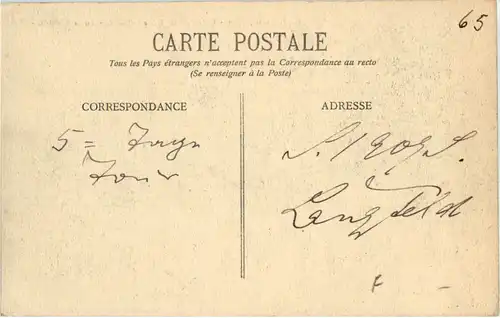 65
CARTE POSTALE
Tous les Pays étrangers n'acceptent pas la Correspondance au recto
(Se renseigner à la Poste)
CORRESPONDANCE
ADRESSE
5 = Tage
Tour
Langfeld
F